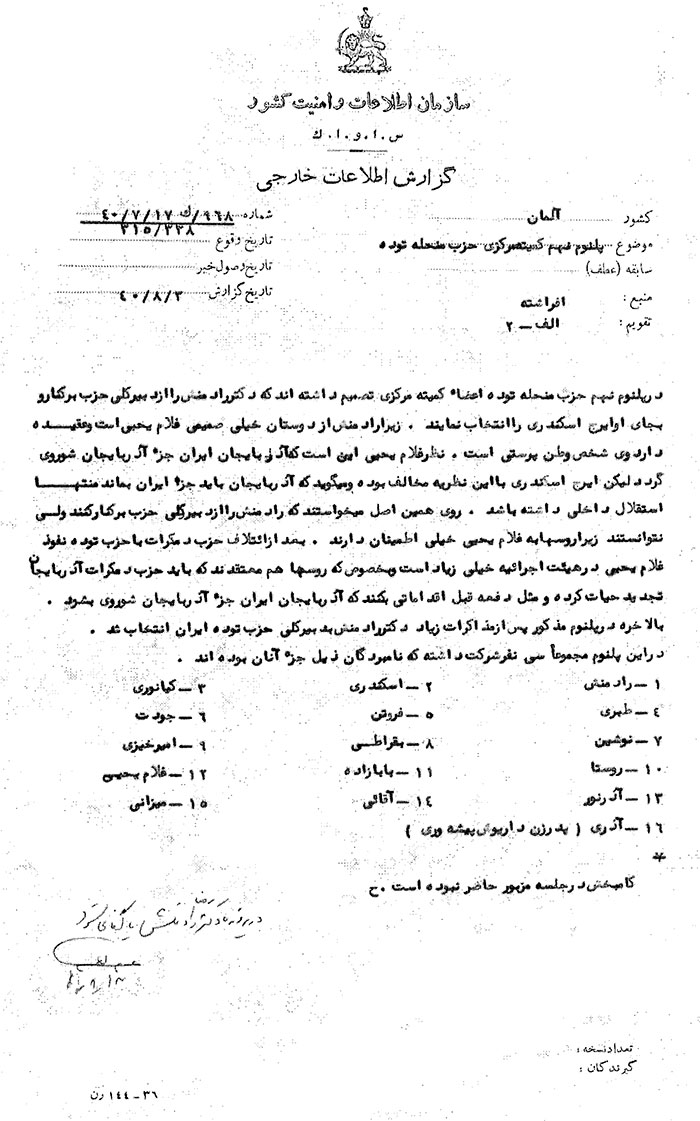 سازمان اطلاعات و امنیت کشور
س.ا.و.ا.ك
گزارش اطلاعات خارجی
کشور آلمان
موضوع پلنوم نهم کمیته‌مرکزی حزب منحله توده
سابقه (عطف)
منبع: افراشته
تقویم: الف - ۲
شماره ۹۶۸/ك ۴۰/۷/۱۷
۳۱۵/۳۳۸
تاریخ وقوع
تاریخ وصول خبر
تاریخ گزارش ۴۰/۸/۳
در پلنوم نهم حزب منحله توده اعضاء کمیته مرکزی تصمیم داشته اند که دکتر رادمنش را از دبیرکلی حزب برکنار و
بجای او ایرج اسکندری را انتخاب نمایند . زیرا رادمنش از دوستان خیلی صمیمی غلام یحیی است و عقیده
دارد وی شخص وطن پرستی است . نظر غلام یحیی این است که آذربایجان ایران جزء آذربایجان شوروی
گردد لیکن ایرج اسکندری با این نظریه مخالف بوده و میگوید که آذربایجان باید جزء ایران بماند منتها
استقلال داخلی داشته باشد . روی همین اصل میخواستند که رادمنش را از دبیرکلی حزب برکنار کنند ولی
نتوانستند زیرا روسها به غلام یحیی خیلی اطمینان دارند . بعد از ائتلاف حزب دمکرات با حزب توده نفوذ
غلام یحیی در هیئت اجرائیه خیلی زیاد است و بخصوص که روسها هم معتقدند که باید حزب دمکرات آذربایجان
تجدید حیات کرده و مثل دفعه قبل اقداماتی بکنند که آذربایجان ایران جزء آذربایجان شوروی بشود .
بالاخره در پلنوم مذکور پس از مذاکرات زیاد دکتر رادمنش بدبیرکلی حزب توده ایران انتخاب شد .
در این پلنوم مجموعاً سی نفر شرکت داشته که نامبردگان ذیل جزء آنان بوده اند .
۱ - رادمنش ۲ - اسکندری ۳ - کیانوری
۴ - طبری ۵ - فروتن ۶ - جودت
۷ - نوشین ۸ - بقراطی ۹ - امیرخیزی
۱۰ - روستا ۱۱ - بابازاده ۱۲ - غلام یحیی
۱۳ - آذرنور ۱۴ - آقائی ۱۵ - میزانی
۱۶ - آذری ( پدرزن داریوش پیشه وری )
*
کامبخش در جلسه مزبور حاضر نبوده است . ح
تعدادنسخه :
گیرندگان :
۳۶ - ۱۴۴ رن